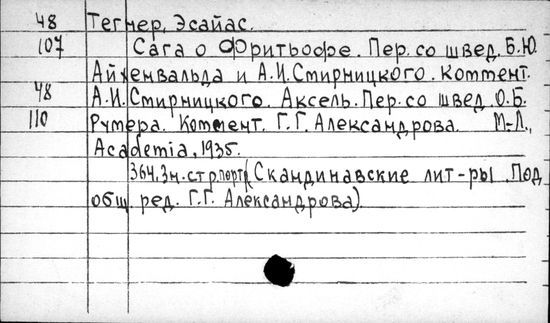 48 Тегнер, Эсайас.
107 Сага о Фритьофе. Пер. со швед. Б.Ю.
Айхенвальда и А.И. Смирницкого. Коммент.
48 А.И. Смирницкого. Аксель. Пер. со швед. О.Б.
110 Румера. Коммент. Г.Г. Александрова. М-Л.,
Academia, 1935.
364, 3н. стр. портр. (Скандинавские лит-ры. Под
общ. ред. Г.Г. Александрова).